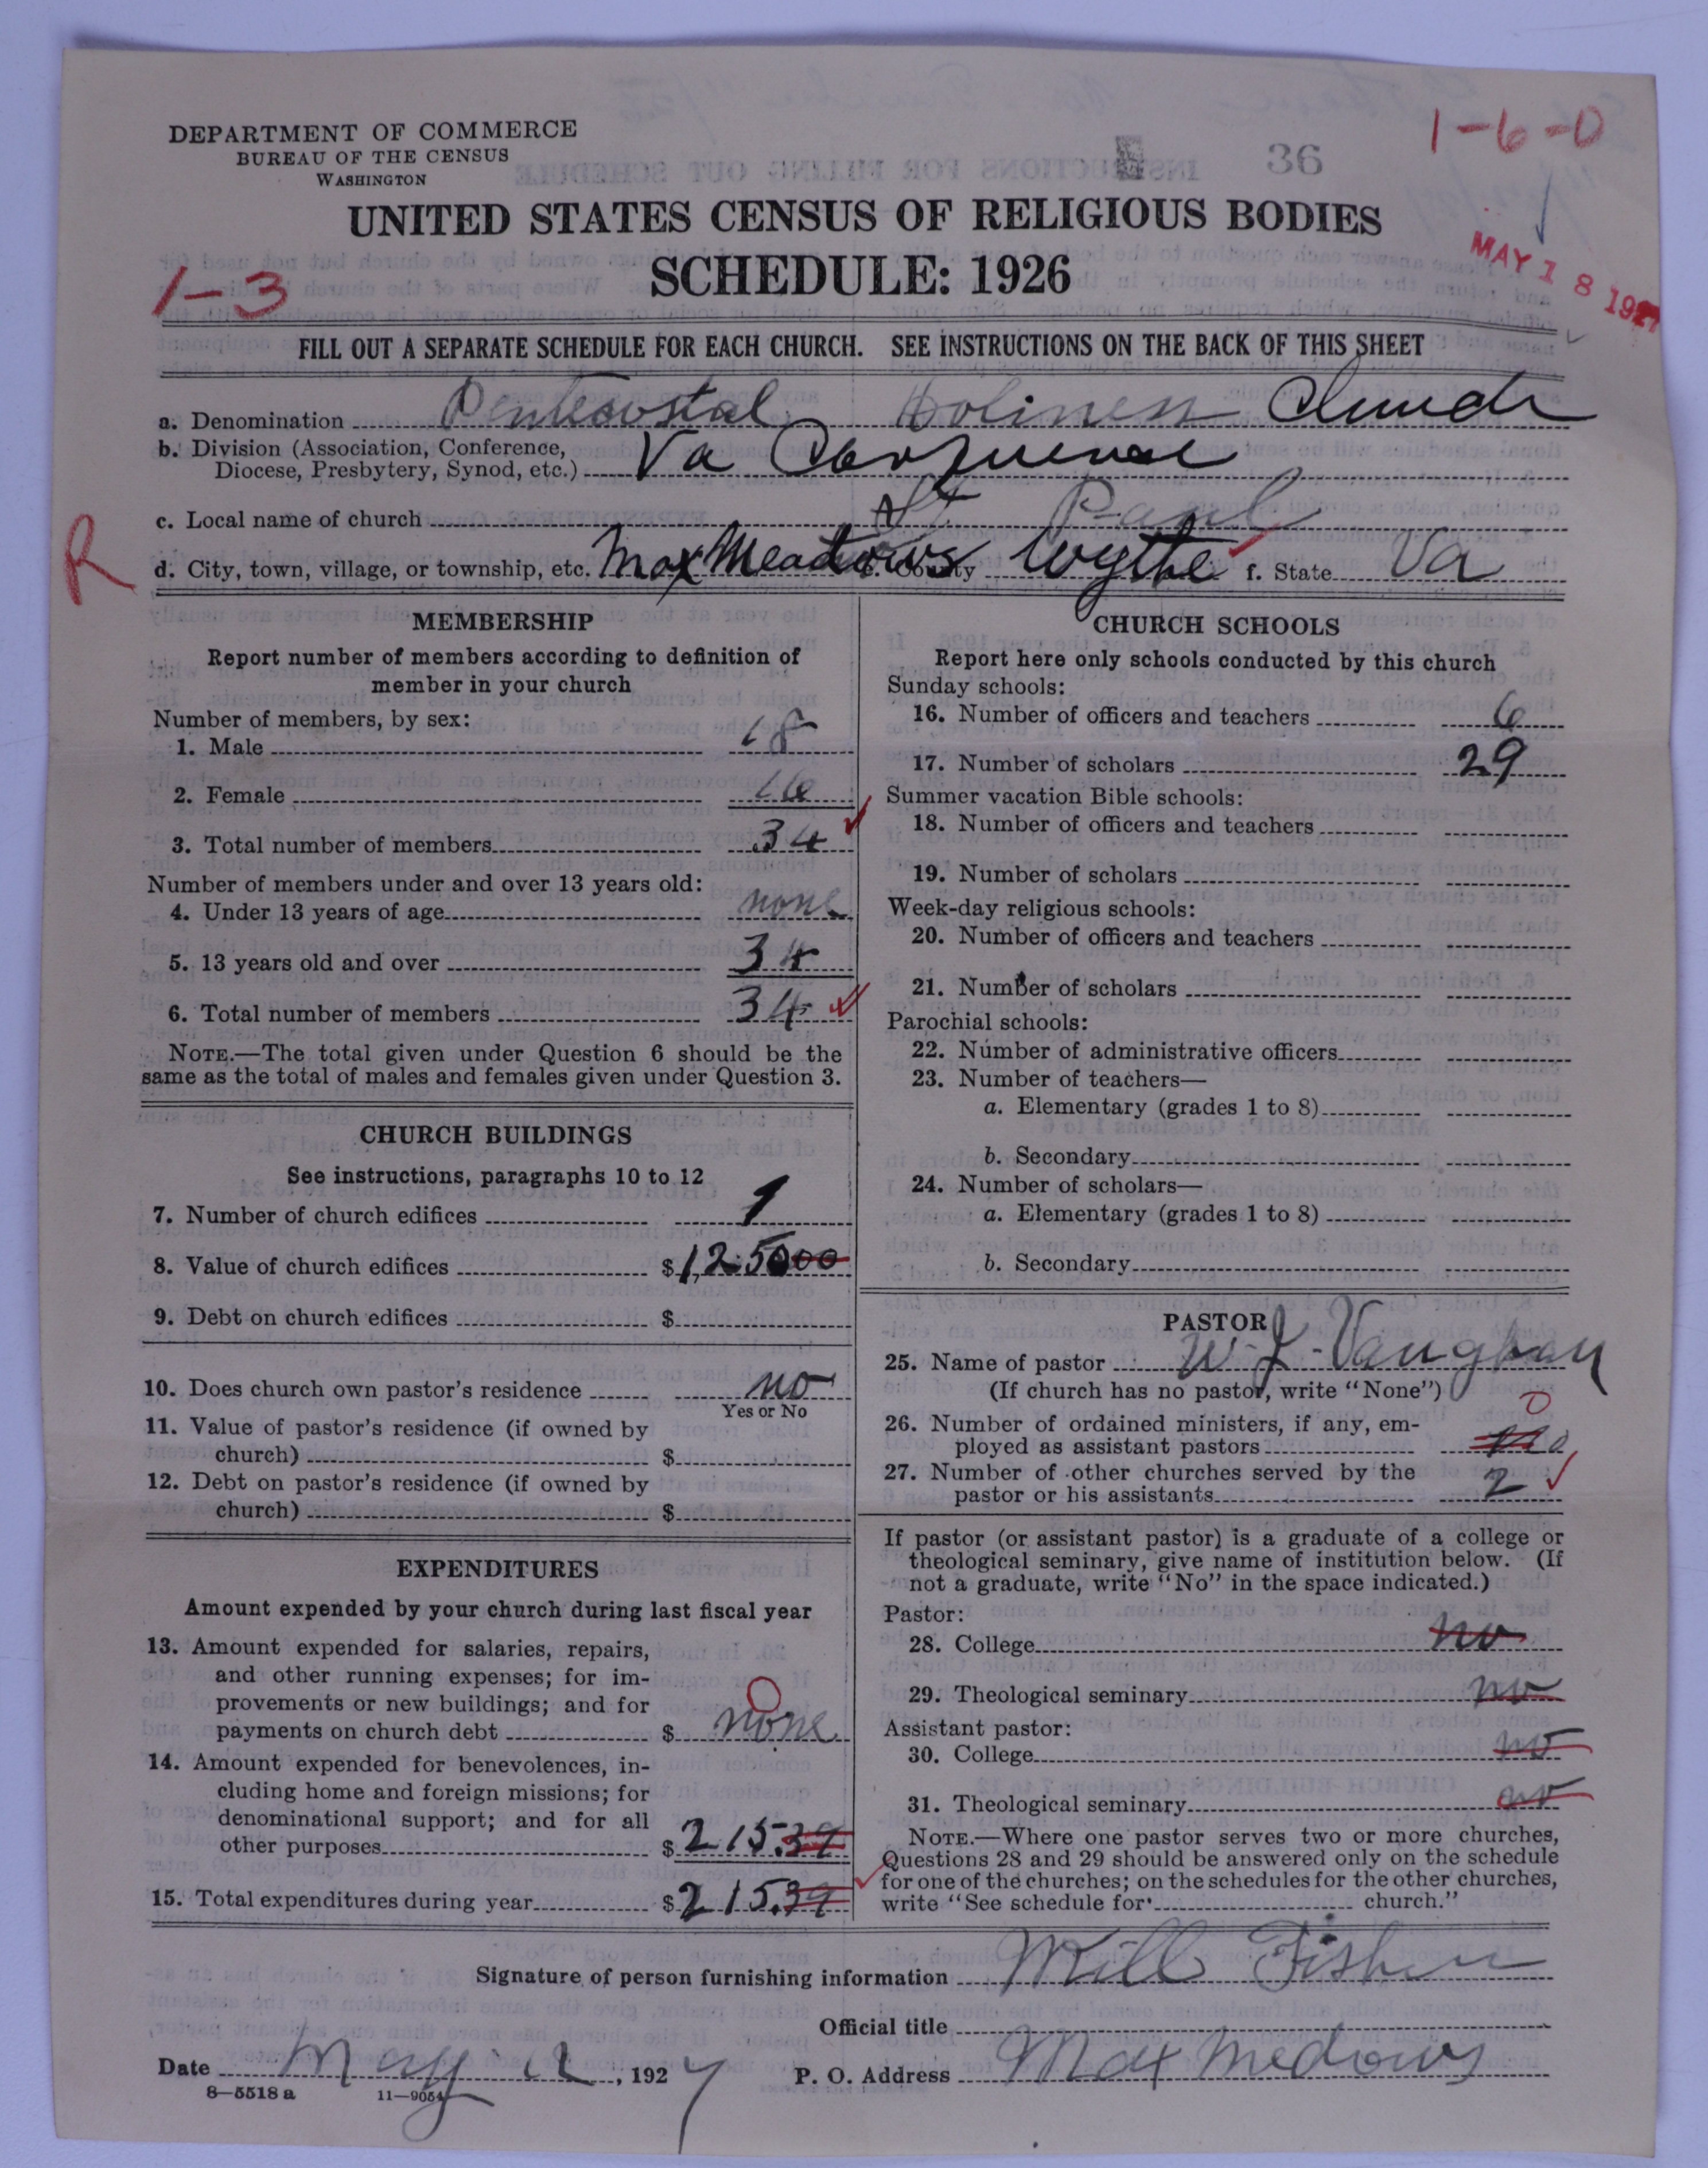 DEPARTMENT OF COMMERCE
BUREAU OF THE CENSUS
WASHINGTON
36
1-6-0
UNITED STATES CENSUS OF RELIGIOUS BODIES
SCHEDULE: 1926
1-3
MAY 18 1927
FILL OUT A SEPARATE SCHEDULE FOR EACH CHURCH. SEE INSTRUCTIONS ON THE BACK OF THIS SHEET
a. Denomination Pentecostal Holiness Church
b. Division (Association, Conference,
Diocese, Presbytery, Synod, etc.) Va
c. Local name of church St Paul
R
d. City, town, village, or township, etc. Max Meadows e. County Wythe f. State Va
MEMBERSHIP
Report number of members according to definition of
member in your church
Number of members, by sex:
1. Male 18
2. Female 16
3. Total number of members 34
Number of members under and over 13 years old:
4. Under 13 years of age none
5. 13 years old and over 34
6. Total number of members 34
NOTE.—The total given under Question 6 should be the
same as the total of males and females given under Question 3.
CHURCH BUILDINGS
See instructions, paragraphs 10 to 12
7. Number of church edifices 1
8. Value of church edifices $1,250 00
9. Debt on church edifices $
10. Does church own pastor's residence no
Yes or No
11. Value of pastor's residence (if owned by
church) $
12. Debt on pastor's residence (if owned by
church) $
EXPENDITURES
Amount expended by your church during last fiscal year
13. Amount expended for salaries, repairs,
and other running expenses; for im-
provements or new buildings; and for
0
payments on church debt $ none
14. Amount expended for benevolences, in-
cluding home and foreign missions; for
denominational support; and for all
other purposes $215.39
15. Total expenditures during year $215.39
CHURCH SCHOOLS
Report here only schools conducted by this church
Sunday schools:
16. Number of officers and teachers 6
17. Number of scholars 29
Summer vacation Bible schools:
18. Number of officers and teachers
19. Number of scholars
Week-day religious schools:
20. Number of officers and teachers
21. Number of scholars
Parochial schools:
22. Number of administrative officers
23. Number of teachers—
a. Elementary (grades 1 to 8)
b. Secondary
24. Number of scholars—
a. Elementary (grades 1 to 8)
b. Secondary
PASTOR
25. Name of pastor W. J. Vaughan
(If church has no pastor, write "None")
0
26. Number of ordained ministers, if any, em-
ployed as assistant pastors
27. Number of other churches served by the
pastor or his assistants 2
If pastor (or assistant pastor) is a graduate of a college or
theological seminary, give name of institution below. (If
not a graduate, write "No" in the space indicated.)
Pastor:
28. College no
29. Theological seminary no
Assistant pastor:
30. College no
31. Theological seminary no
NOTE.—Where one pastor serves two or more churches,
Questions 28 and 29 should be answered only on the schedule
for one of the churches; on the schedules for the other churches,
write "See schedule for church."
Signature of person furnishing information Will Fisher
Official title
Date May , 1927 P. O. Address Max Medows
8—5518 a 11—9054